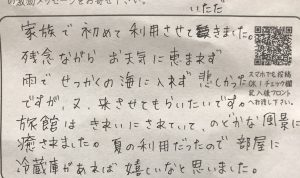 いただ
家族で初めて利用させて頂きました。
残念ながらお天気に恵まれず
雨でせっかくの海に入れず悲しかった
ですが、又、来させてもらいたいです。
旅館はきれいにされていて、のどかな風景に
癒されました。夏の利用だったので部屋に
冷蔵庫があれば嬉しいなと思いました。
スマホでも投稿
OK！チェック欄
記入後フロント
へお渡し下さい。